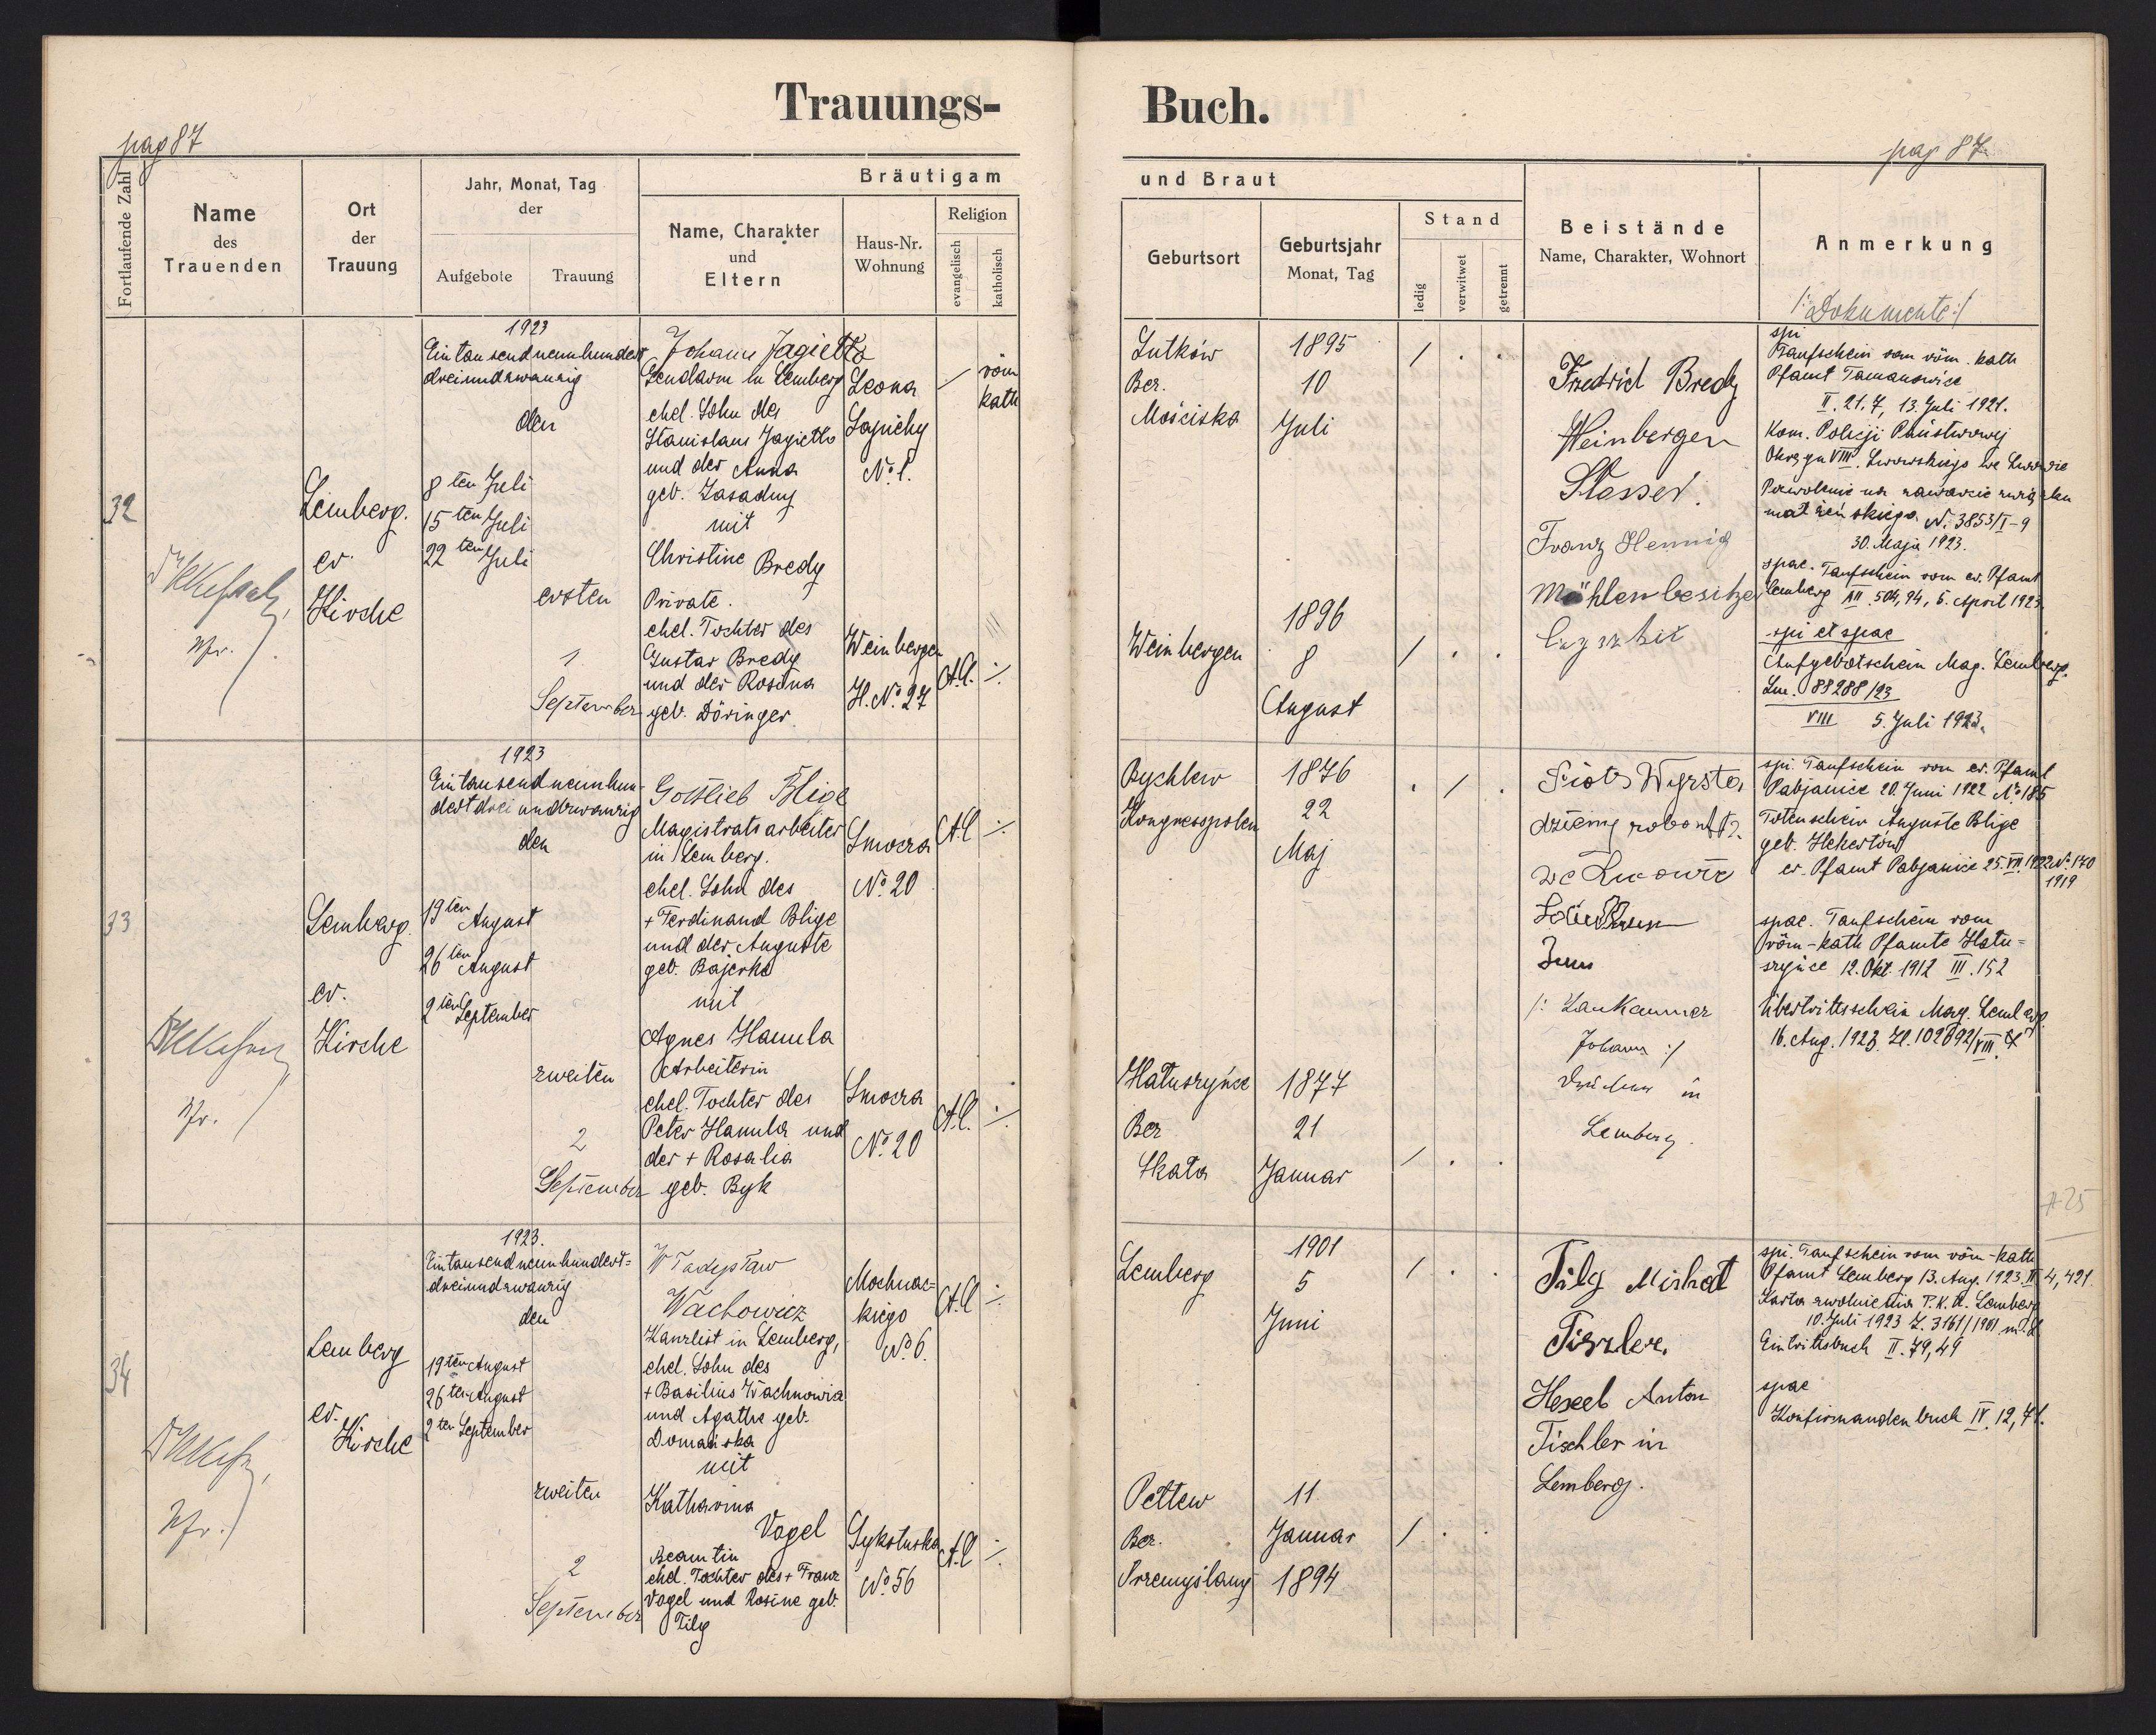 Trauungs-
Buch.
pag 87
pag 87
Fortlaufende Zahl
Name
des
Trauenden
Ort
der
Trauung
Jahr, Monat, Tag
der
Aufgebote
Trauung
Bräutigam
Name, Charakter
und
Eltern
Haus-Nr.
Wohnung
Religion
evangelisch
katholisch
und Braut
Geburtsort
Geburtsjahr
Monat, Tag
Stand
ledig
verwitwet
getrennt
Beistände
Name, Charakter, Wohnort
Anmerkung
/: Dokumente :/
32
Pfr.
Lemberg.
ev.
Kirche
1923
Eintausendneunhundert
dreiundzwanzig
den
8ten Juli
15ten Juli
22ten Juli
ersten
1
September
Johann Jagiełło
Gendarm in Lemberg
ehel. Sohn des
Stanislaus Jagiełło
und der Anna
geb. Zasadny
mit
Christine Bredy
Private.
ehel. Tochter des
Gustav Bredy
und der Rosina
geb. Döringer.
Leona
Sapiehy
No 1.
Weinbergen
H. No 27
röm
kath
A.C.
Lutków
Bez.
Mościska
1895
10
Juli
Weinbergen
1896
8
August
Fredrich Bredy
Weinbergen
Franz Hennig
Mühlenbesitzer
spi
Taufschein vom röm. kath
Pfamt Tamanowice
II. 21. 7, 13. Juli 1921.
Kom. Policji Państwowej
Okręgu VIII. Lwowskiego we Lwowie
Pozwolenie na zawarcie związku
małżeńskiego. N. 3853/I-9
30. Maja 1923.
spae. Taufschein vom ev. Pfamt
Lemberg XII. 504, 94, 6. April 1923.
spi et spae
Aufgebotschein Mag. Lemberg.
Lm. 88288/23
VIII 5. Juli 1923.
33
Pfr.
Lemberg.
ev.
Kirche
1923
Eintausendneunhun-
dertdreiundzwanzig
den
19ten August
26ten August
2ten September
zweiten
2
September
Gottlieb Blige
Magistratsarbeiter
in Lemberg.
ehel. Sohn des
+ Ferdinand Blige
und der Auguste
geb. Bajerke
mit
Agnes Hamula
Arbeiterin
ehel. Tochter des
Peter Hamula und
der + Rosalia
geb. Byk
Smocza
No 20
Smocza
No 20
A.C.
A.C.
Bychlew
Kongresspolen
1876
22
Maj
Hałuszyńce
Bez
Skała
1877
21
Januar
Piotr
we Lwowie
/: Lankammer
Johann :/
in
Lemberg.
spi. Taufschein vom ev. Pfamt
Pabjanice 20. Juni 1922 No 185
Totenschein Auguste Blige
geb.
ev. Pfamt Pabjanice 25. VII. 1922 No 170
1919
spae. Taufschein vom
röm-kath Pfamte Hału=
szyńce 12. Okt. 1912 III. 152
Übertrittsschein Mag. Lemberg
16. Aug. 1923. Zl. 102892/VIII.
#25
34
Pfr.
Lemberg
ev.
Kirche
1923.
Eintausendneunhundert=
dreiundzwanzig
den
19ten August
26ten August
2ten September
zweiten
2
September
Władysław
Wachowicz
Kanzlist in Lemberg,
ehel. Sohn des
+ Basilius Wachnowicz
und Agathe geb.
Domańska
mit
Katharina
Vogel
Beamtin
ehel. Tochter des + Franz
Vogel und Rosine geb.
Tilg
Mochnac=
kiego
No 6.
Sykstuska
No 56
A.C
A.C
Lemberg
1901
5
Juni
Peltew
Bez.
Przemyślany
11
Januar
1894
Tilg Michał
Tiszler.
Anton
Tischler in
Lemberg.
spi. Taufschein vom röm-kath
Pfamt Lemberg 13. Aug. 1923. II 4, 421.
Karta zwolnienia P.K.U. Lemberg
10. Juli 1923 L. 3161/1901
Eintrittsbuch II. 79, 49
spae
Konfirmandenbuch IV. 12, 71.